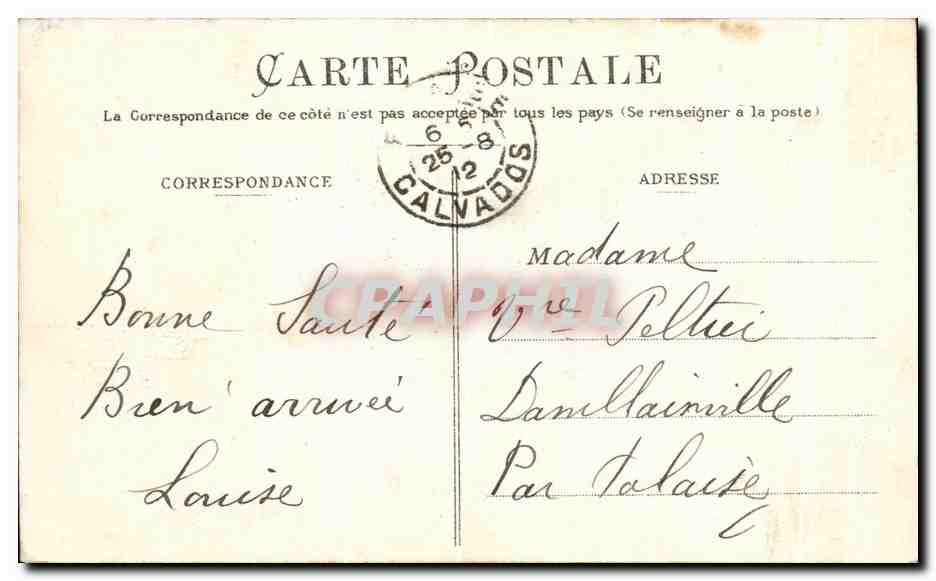 CARTE POSTALE
La Correspondance de ce côté n'est pas acceptée par tous les pays (Se renseigner à la poste)
6
25 -8
12
CALVADOS
CORRESPONDANCE
ADRESSE
Bonne Santé
Bien arrivée
Louise
Madame
Vve
Par Falaise
CPAPHIL